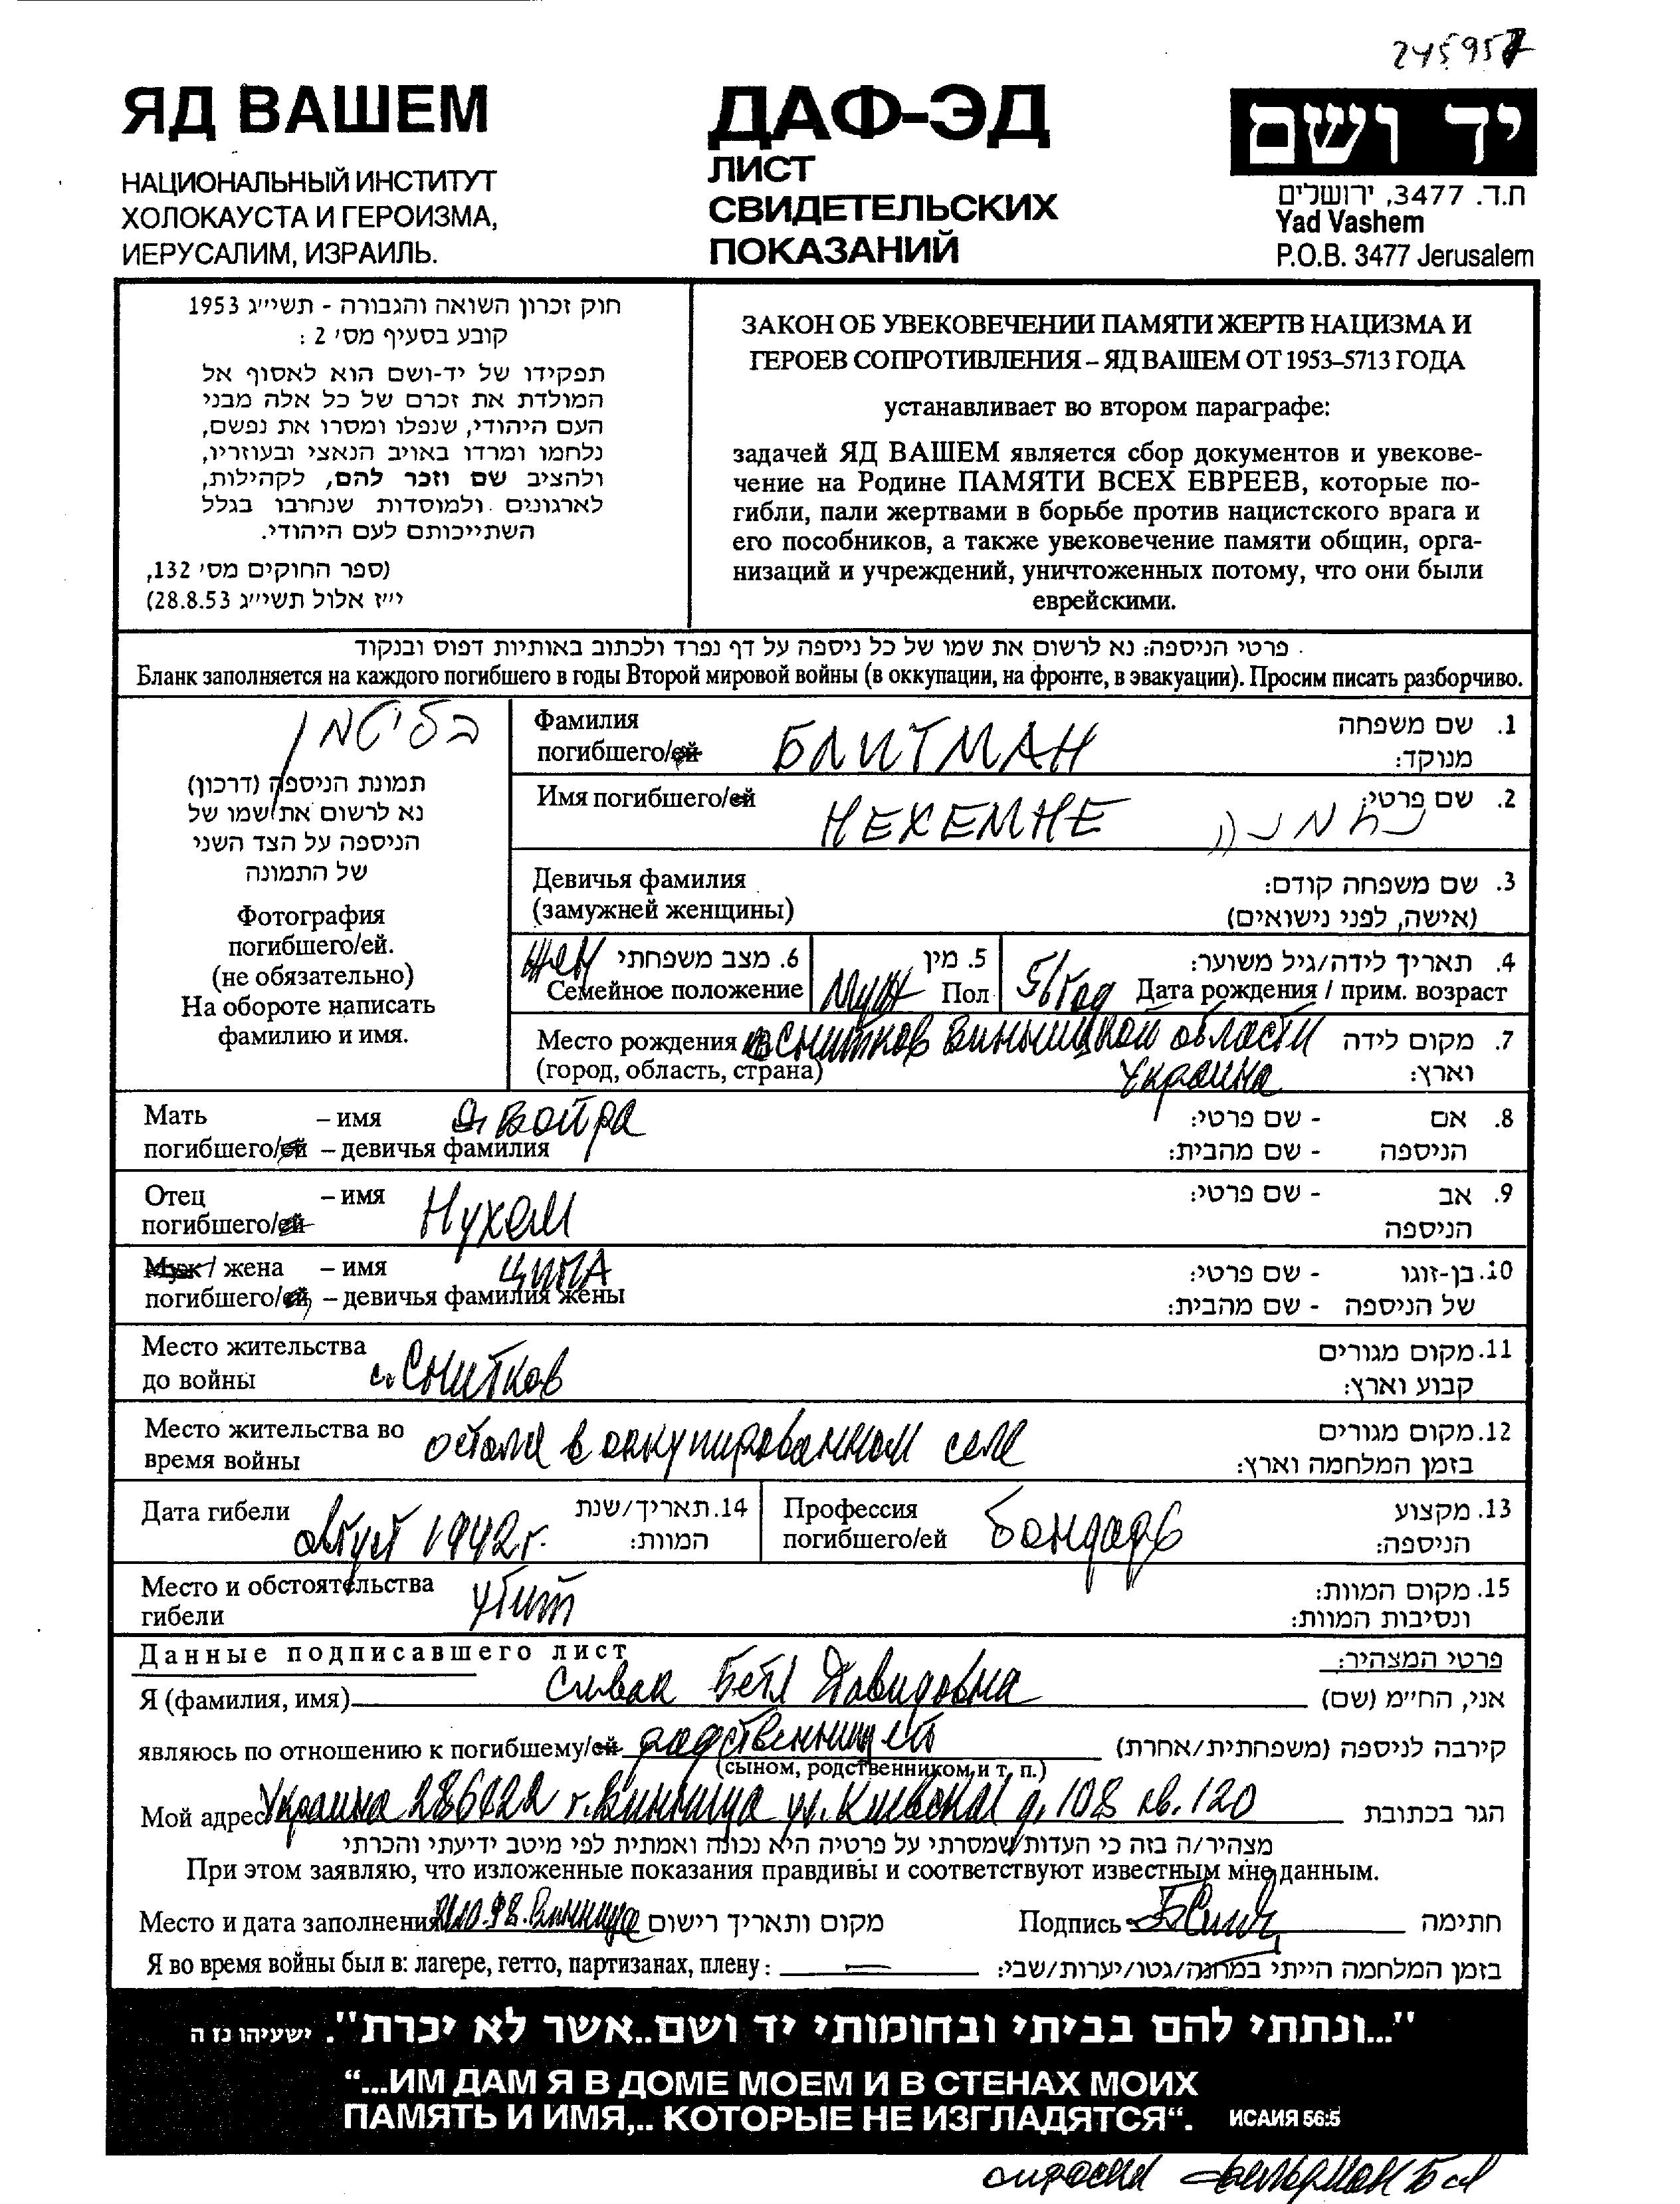 245957
ЯД ВАШЕМ
НАЦИОНАЛЬНЫЙ ИНСТИТУТ
ХОЛОКАУСТА И ГЕРОИЗМА,
ИЕРУСАЛИМ, ИЗРАИЛЬ.
ДАФ-ЭД
ЛИСТ
СВИДЕТЕЛЬСКИХ
ПОКАЗАНИЙ
יד ושם
ת.ד. 3477, ירושלים
Yad Vashem
P.O.B. 3477 Jerusalem
חוק זכרון השואה והגבורה - תשי״ג 1953
קובע בסעיף מס׳ 2 :
תפקידו של יד-ושם הוא לאסוף אל
המולדת את זכרם של כל אלה מבני
העם היהודי, שנפלו ומסרו את נפשם,
נלחמו ומרדו באויב הנאצי ובעוזריו,
ולהציב שם וזכר להם, לקהילות,
לארגונים ולמוסדות שנחרבו בגלל
השתייכותם לעם היהודי.
(ספר החוקים מס׳ 132,
י״ז אלול תשי״ג 28.8.53)
ЗАКОН ОБ УВЕКОВЕЧЕНИИ ПАМЯТИ ЖЕРТВ НАЦИЗМА И
ГЕРОЕВ СОПРОТИВЛЕНИЯ – ЯД ВАШЕМ ОТ 1953–5713 ГОДА
устанавливает во втором параграфе:
задачей ЯД ВАШЕМ является сбор документов и увекове-
чение на Родине ПАМЯТИ ВСЕХ ЕВРЕЕВ, которые по-
гибли, пали жертвами в борьбе против нацистского врага и
его пособников, а также увековечение памяти общин, орга-
низаций и учреждений, уничтоженных потому, что они были
еврейскими.
פרטי הניספה: נא לרשום את שמו של כל ניספה על דף נפרד ולכתוב באותיות דפוס ובנקוד
Бланк заполняется на каждого погибшего в годы Второй мировой войны (в оккупации, на фронте, в эвакуации). Просим писать разборчиво.
בליטמן
תמונת הניספה (דרכון)
נא לרשום את שמו של
הניספה על הצד השני
של התמונה
Фотография
погибшего/ей.
(не обязательно)
На обороте написать
фамилию и имя.
Фамилия
погибшего/ей БЛИТМАН
1. שם משפחה
מנוקד:
Имя погибшего/ей НЕХЕМНЕ
2. שם פרטי:
Девичья фамилия
(замужней женщины)
3. שם משפחה קודם:
(אישה, לפני נישואים)
6. מצב משפחתי
Семейное положение жен
5. מין
Пол муж
4. תאריך לידה/גיל משוער:
Дата рождения / прим. возраст год
Место рождения Снитков Винницкой области
(город, область, страна) Украина
7. מקום לידה
וארץ:
Мать – имя Двойра
погибшего/ей – девичья фамилия
8. אם - שם פרטי:
הניספה - שם מהבית:
Отец – имя Нухем
погибшего/ей
9. אב - שם פרטי:
הניספה
Муж / жена – имя ЦИПА
погибшего/ей, – девичья фамилия жены
10. בן-זוגו - שם פרטי:
של הניספה - שם מהבית:
Место жительства
до войны с. Снитков
11. מקום מגורים
קבוע וארץ:
Место жительства во
время войны остался в оккупированном селе
12. מקום מגורים
בזמן המלחמה וארץ:
Дата гибели август 1942 г.
14. תאריך/שנת
המוות:
Профессия
погибшего/ей Бондарь
13. מקצוע
הניספה:
Место и обстоятельства
гибели убит
15. מקום המוות:
ונסיבות המוות:
Данные подписавшего лист
פרטי המצהיר:
Я (фамилия, имя) Спивак Бетя Давидовна
אני, הח״מ (שם)
являюсь по отношению к погибшему/ей родственницей
(сыном, родственником и т. п.)
קירבה לניספה (משפחתית/אחרת)
Мой адрес Украина 286022 г. Винница ул. Киевская д. 108 кв. 120
הגר בכתובת
מצהיר/ה בזה כי העדות שמסרתי על פרטיה היא נכונה ואמתית לפי מיטב ידיעתי והכרתי
При этом заявляю, что изложенные показания правдивы и соответствуют известным мне данным.
Место и дата заполнения 10.98. Винница
מקום ותאריך רישום
Подпись
חתימה
Я во время войны был в: лагере, гетто, партизанах, плену : —
בזמן המלחמה הייתי במחנה/גטו/יערות/שבי:
"...ונתתי להם בביתי ובחומותי יד ושם..אשר לא יכרת". ישעיהו נו ה
“...ИМ ДАМ Я В ДОМЕ МОЕМ И В СТЕНАХ МОИХ
ПАМЯТЬ И ИМЯ,.. КОТОРЫЕ НЕ ИЗГЛАДЯТСЯ“. ИСАИЯ 56:5